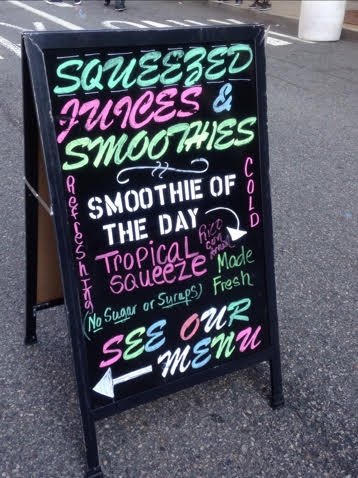 SQUEEZED
JUICES &
SMOOTHIES
Refreshing
COLD
SMOOTHIE OF
THE DAY
Rico
con
Tropical
Squeeze
Made
Fresh
(No Sugar or Syraps)
SEE OUR
MENU